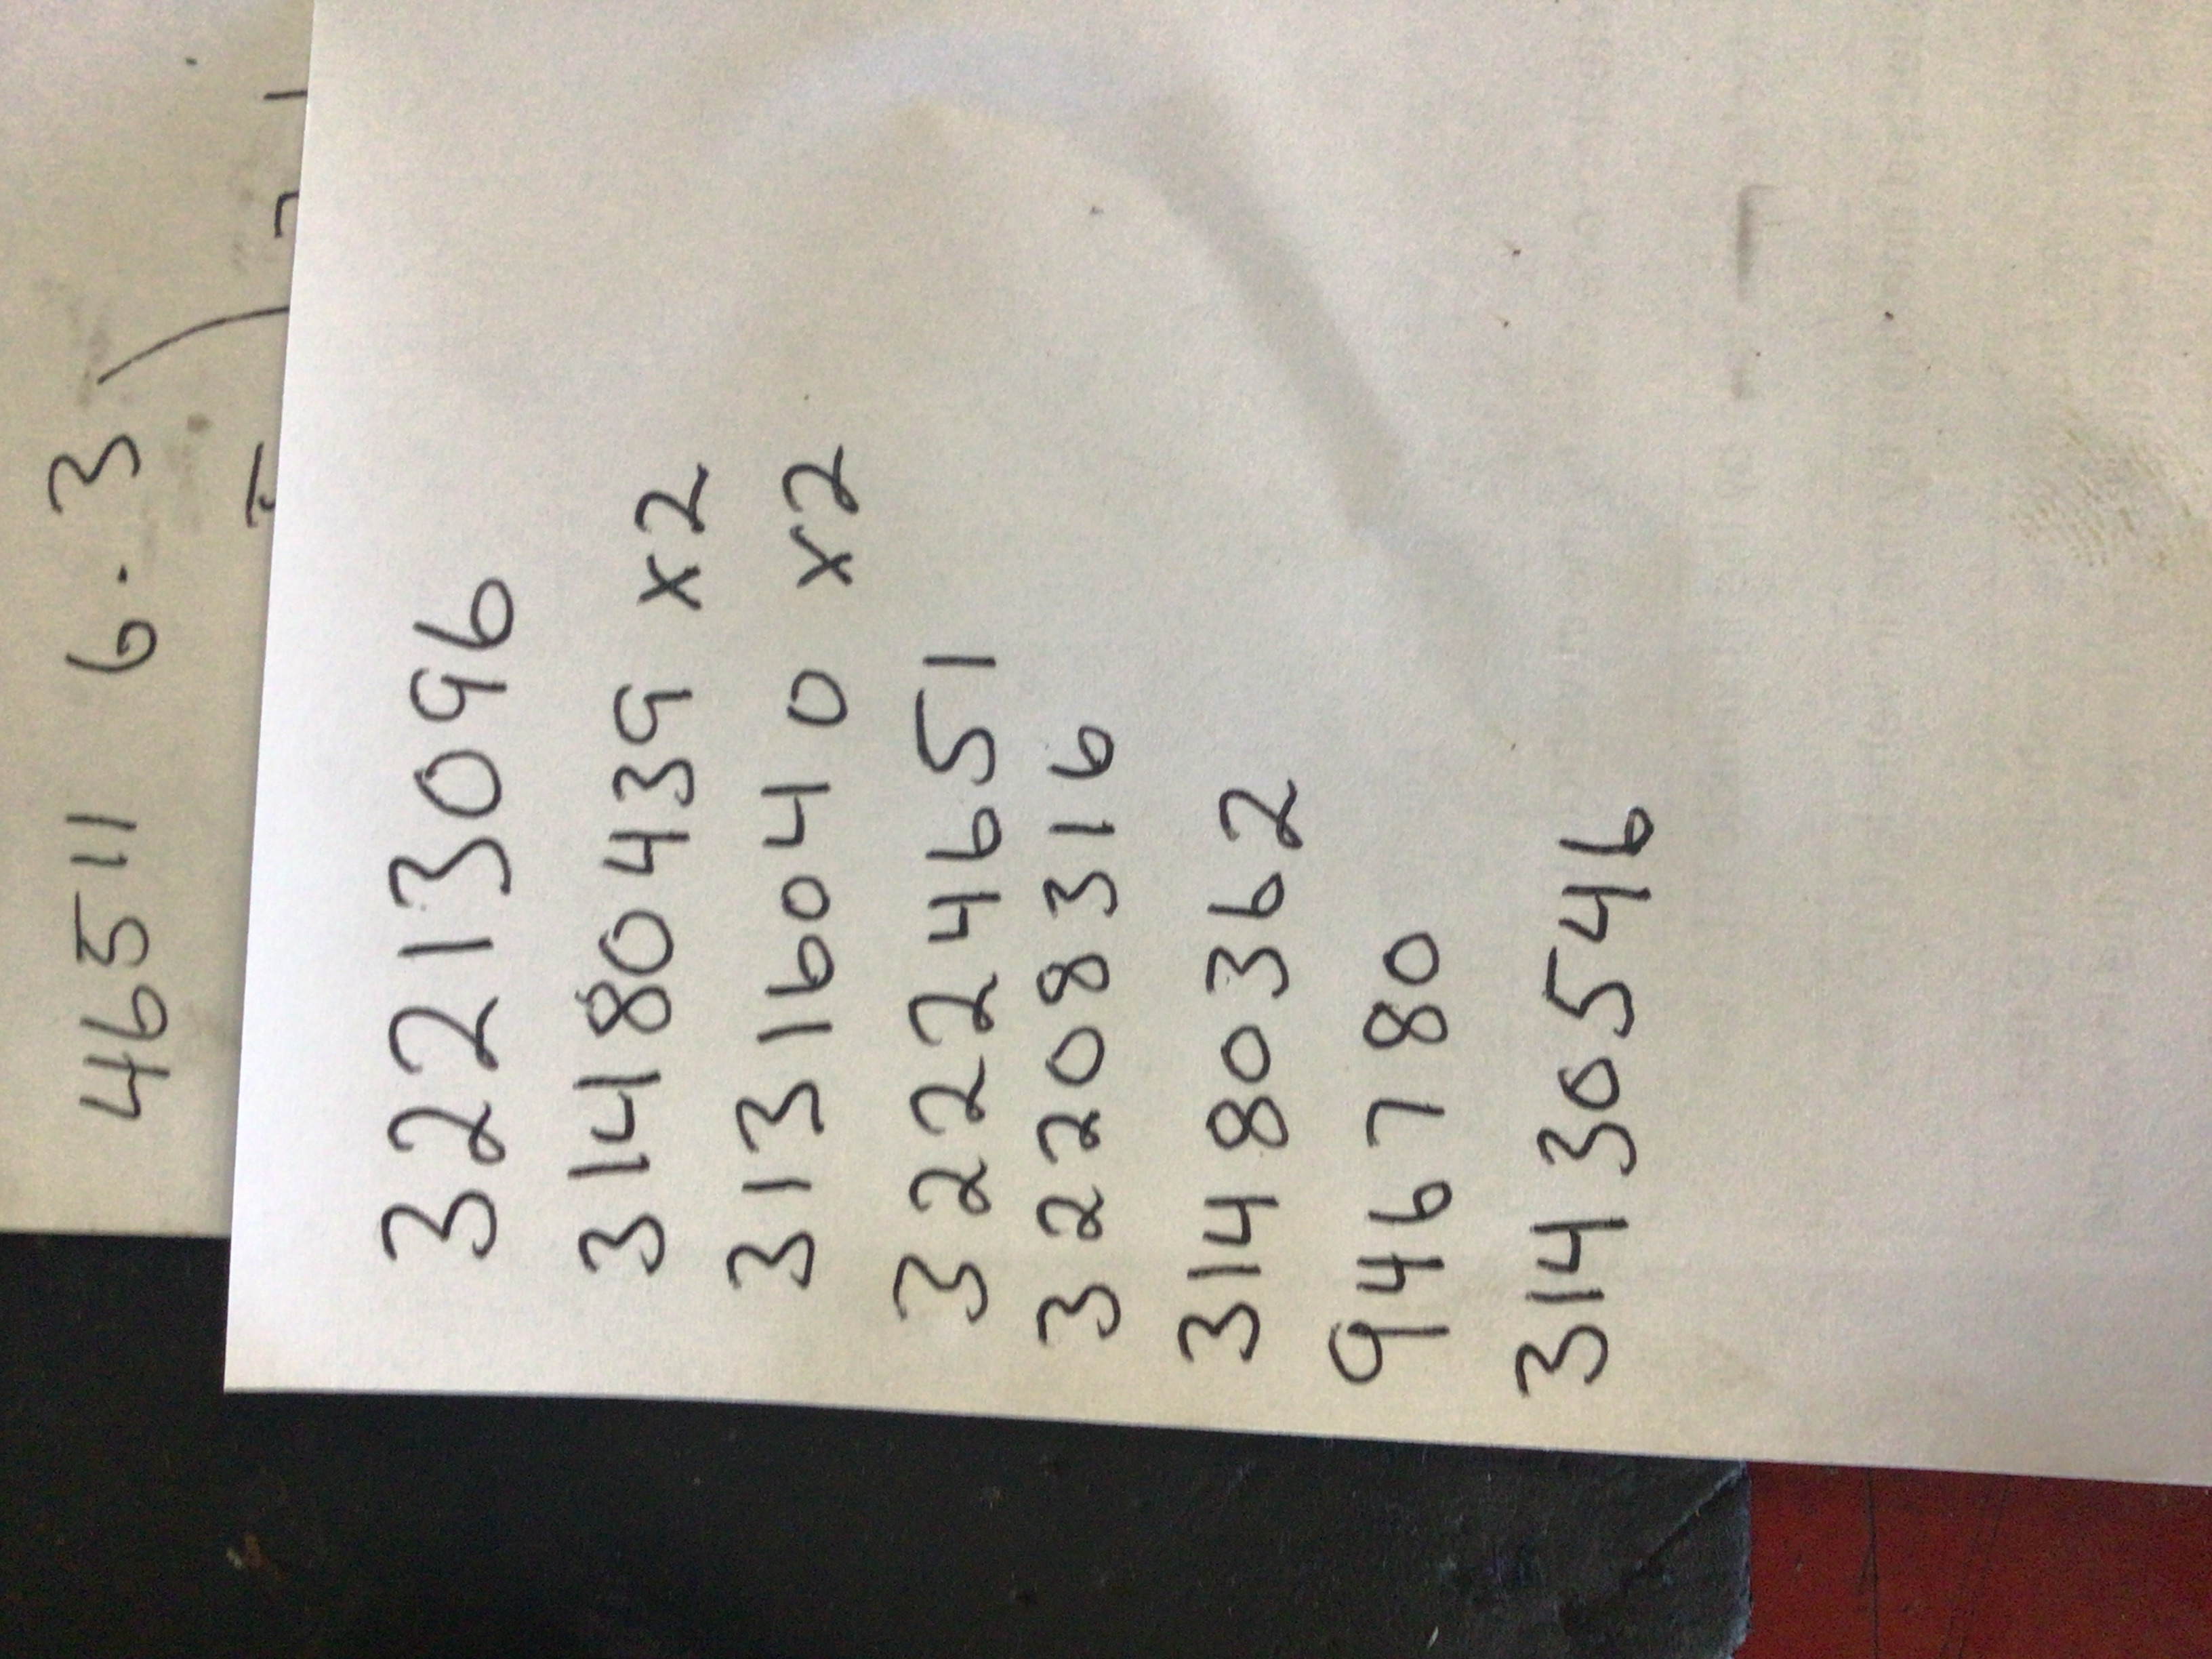 46511 6.3
32213096
31480439 x2
3131604 0 x2
32224651
32208316
31480362
946780
31430546